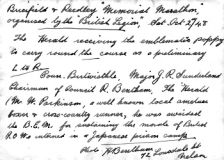 Brierfield & Reedley Memorial Marathon,
organised by the British Legion, Sat. Oct. 27/45
The Herald receiving the emblematic poppy
to carry round the course as a preliminary
L to R
Coun. Butterwhite, Major J. R. Sunderland
Chairman of Council R. Bentham, The Herald
(Mr H. Parkinson, a well known local amateur
boxer & cross-country winner, he was awarded
the B.E.M. for sustaining the morale of British
P.O.Ws interned in a Japanese prison camp
Photo H Bentham
72 Lonsdale St
Nelson